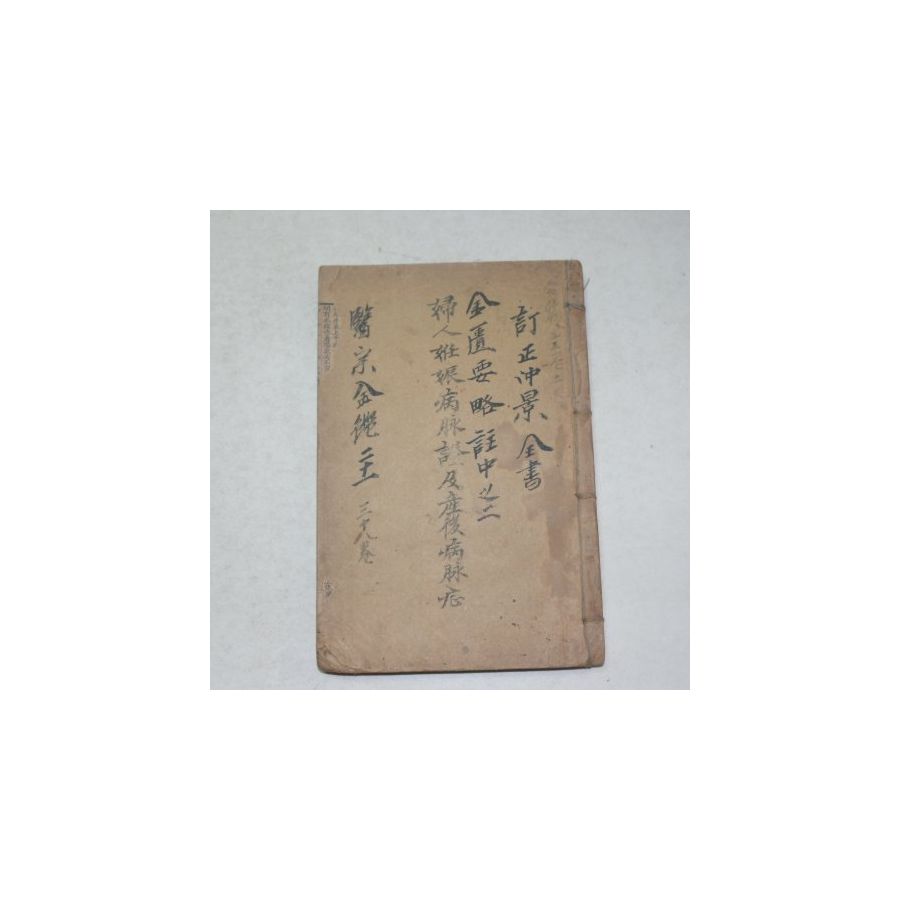 訂正沖景全書
金匱要略註中之二
婦人姙娠病脉訣及産後病脉症
醫宗金鑑
三十八卷